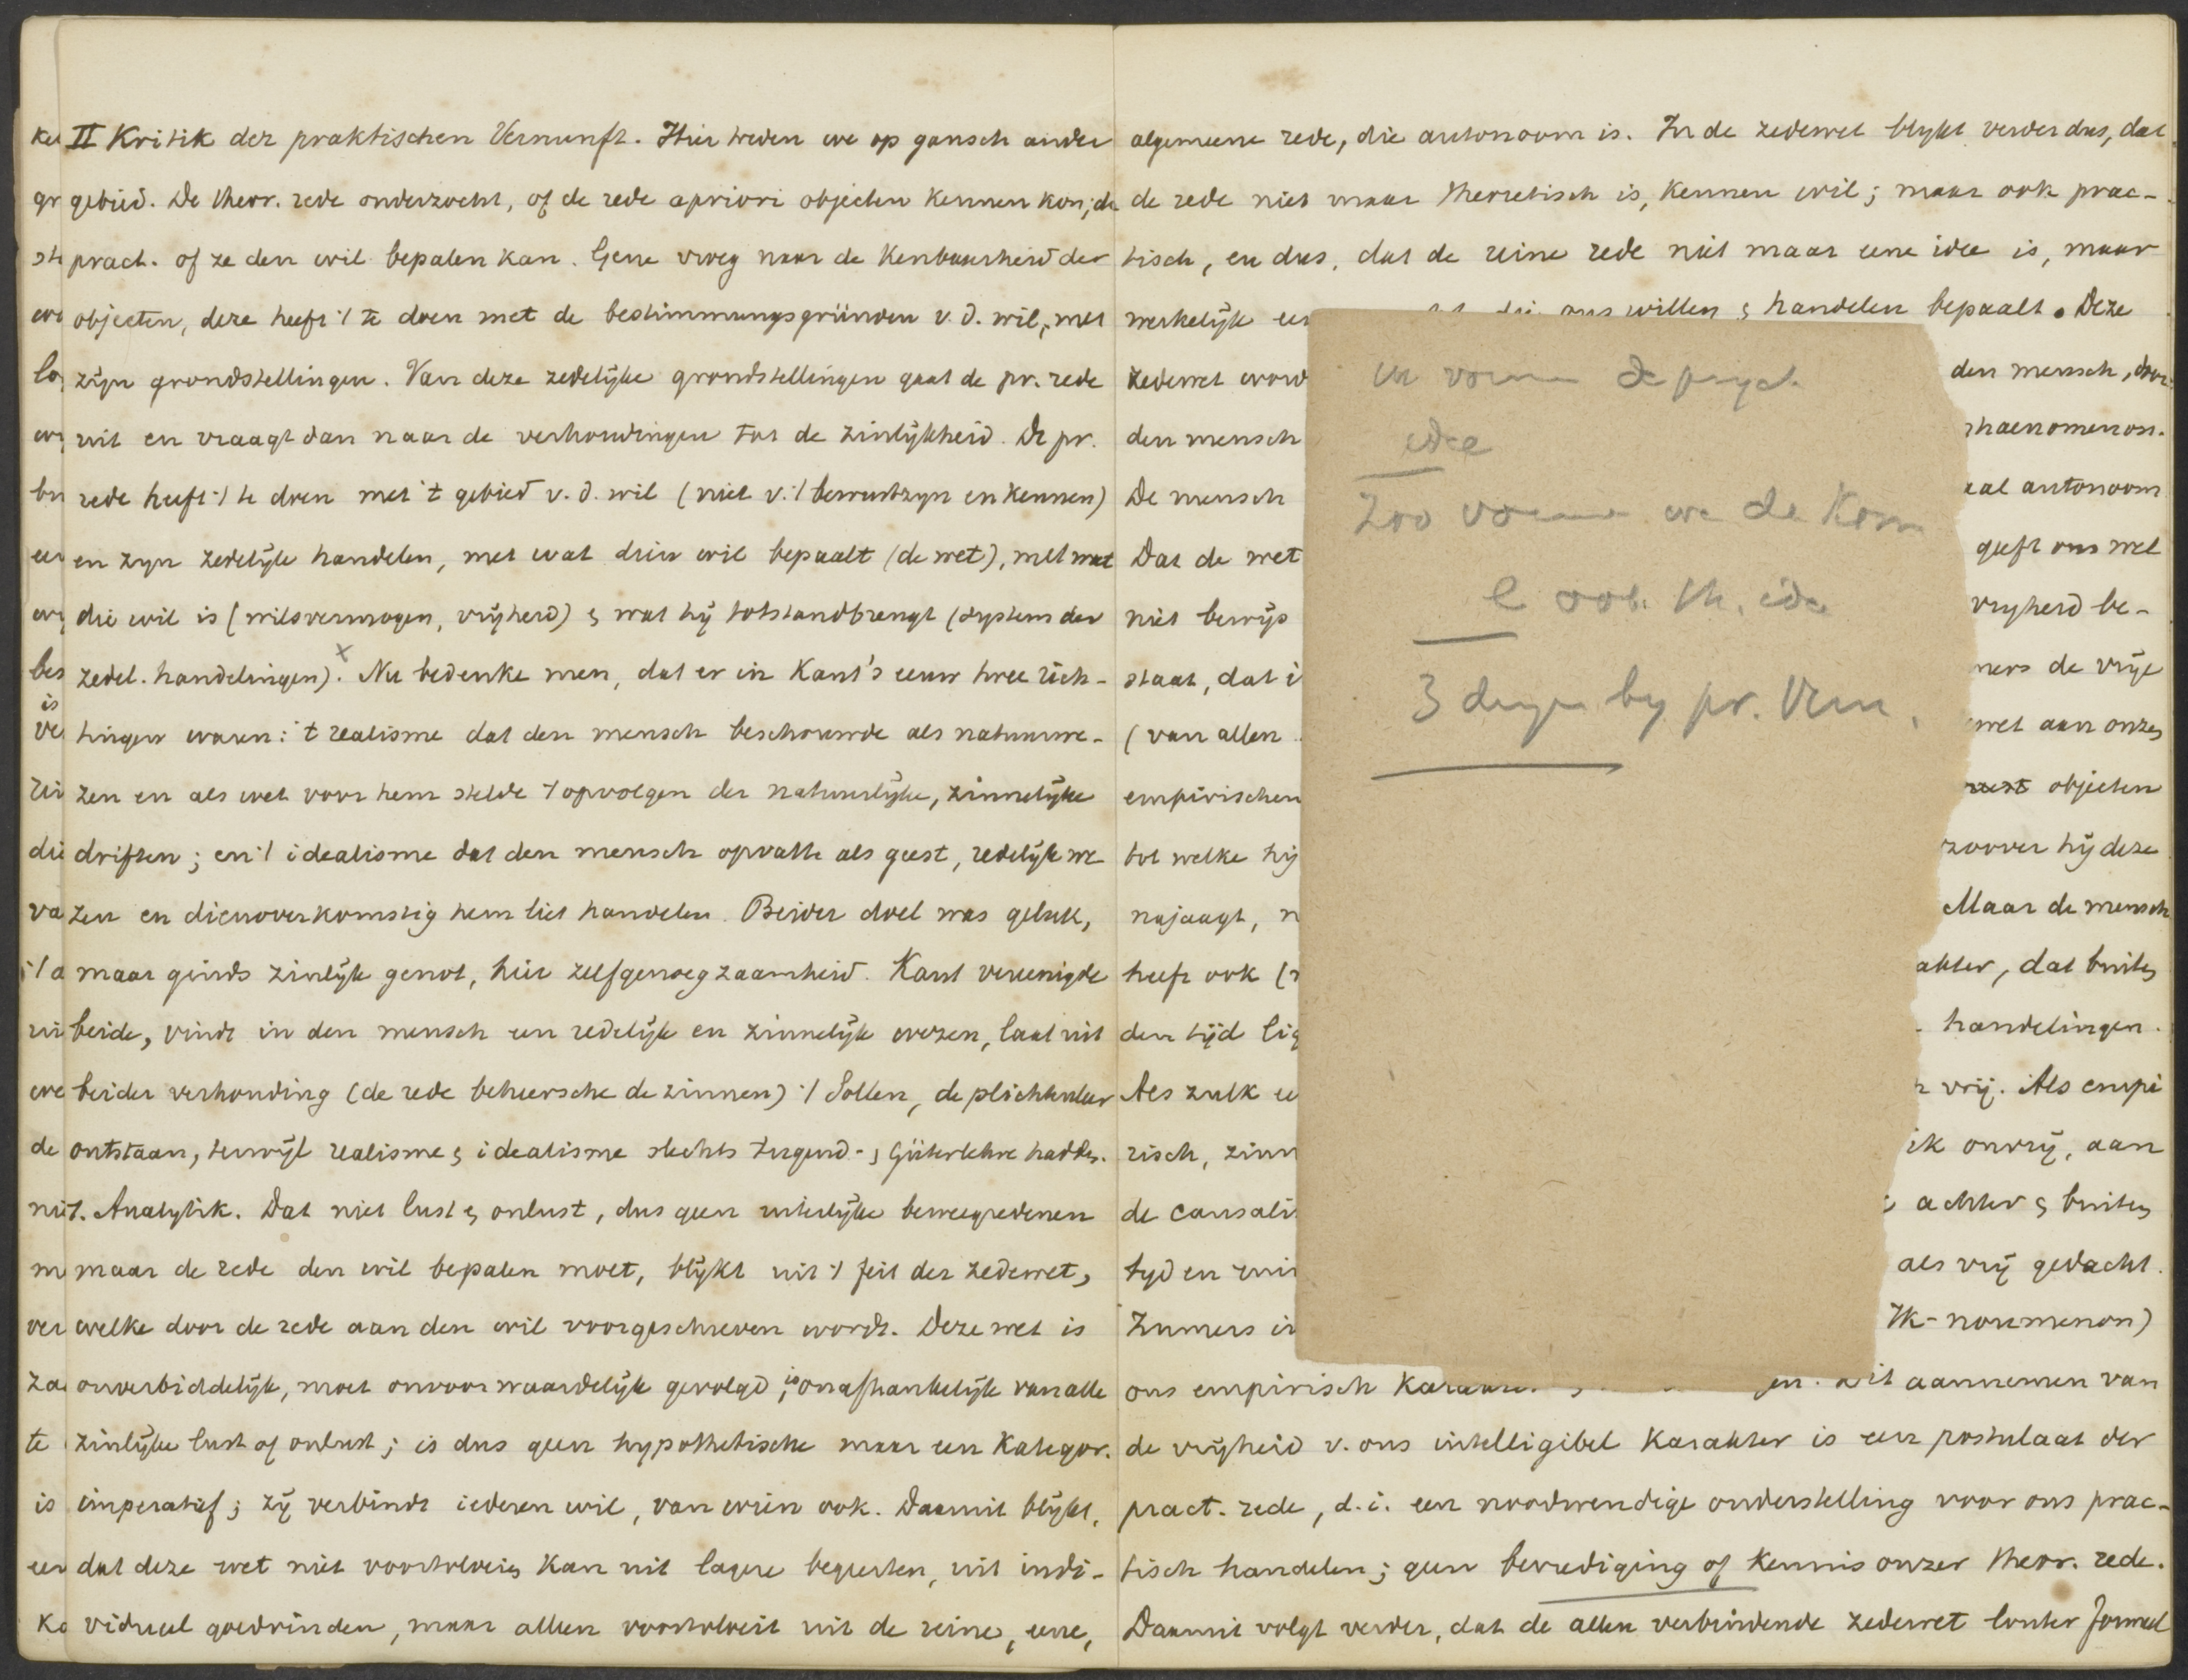 II Kritik der praktischen Vernunft. Hier treden we op gansch ander
gebied. De theor. rede onderzocht, of de rede apriori objecten kennen kon; de
pract. of ze den wil bepalen kan. Gene vroeg naar de kenbaarheid der
objecten, deze heeft 't te doen met de bestimmungsgründen v. d. wil, met
zijn grondstellingen. Van deze zedelijke grondstellingen gaat de pr. rede
uit en vraagt dan naar de verhoudingen tot de zinlijkheid. De pr.
rede heeft 't te doen met 't gebied v. d. wil (niet v. 't bewustzyn en kennen)
en zyn zedelijk handelen, met wat dien wil bepaalt (de wet), met wat
die wil is (wilsvermogen, vrijheid) & wat hij totstandbrengt (systems der
zedel. handelingen). x Nu bedenke men, dat er in Kant's eeuw twee rich-
tingen waren: 't realisme dat den mensch beschouwde als natuurwe-
zen en als wet voor hem stelde 't opvolgen der natuurlijke, zinnelijke
driften; en 't idealisme dat den mensch opvatte als geest, redelijk we
zen en dienovereenkomstig hem liet handelen. Beider doel was geluk,
maar ginds zinlijk genot, hier zelfgenoegzaamheid. Kant vereenigde
beide, vindt in den mensch een redelijk en zinnelijk wezen, laat uit
beider verhouding (de rede beheersche de zinnen) 't Sollen, de plichtenleer
ontstaan, terwijl realisme & idealisme slechts Tugend- & Güterlehre hadden.
1. Analytik. Dat niet lust & onlust, dus geen uiterlijke beweegredenen
maar de rede den wil bepalen moet, blijkt uit 't feit der zedewet,
welke door de rede aan den wil voorgeschreven wordt. Deze wet is
onverbiddelijk, moet onvoorwaardelijk gevolgd, is onafhankelijk van alle
zinlijke lust of onlust; is dus geen hypothetische maar een Kategor.
imperatief; zij verbindt iederen wil, van wien ook. Daaruit blijkt,
dat deze wet niet voortvloeien kan uit lagere begeerten, uit indi-
vidueel goedvinden, maar alleen voortvloeit uit de reine, eene,
algemeene rede, die autonoom is. In de zedewet blijkt verder dus, dat
de rede niet maar theoretisch is, kennen wil; maar ook prac-
tisch, en dus, dat de reine rede niet maar eene idee is, maar
werkelijk een die ons willen & handelen bepaalt. Deze
zedewet word den mensch, door
den mensch phaenomenon.
De mensch autonoom
Dat de wet geeft ons wel
niet bewijs vrijheid be-
staat, dat i de vrije
(van allen wet aan onzen
empirischen objecten
tot welke hij zoover hij deze
najaagt, n Maar de mensch
heeft ook ( akter, dat buiten
den tijd lig handelingen.
Als zulk ee vrij. Als empi
risch, zinn ik onvrij, aan
de causali achter & buiten
tyd en als vrij gedacht.
Immers in Ik-noumenon)
ons empirisch Dit aannemen van
de vrijheid v. ons intelligibel karakter is een postulaat der
pract. rede, d. i. een noodwendige onderstelling voor ons prac-
tisch handelen; geen bevrediging of kennis onzer theor. rede.
Daaruit volgt verder, dat de allen verbindende zedewet louter formeel
de psych.
idee
Zoo we de Kosm
th. idee
3 dingen by pr. Vern.